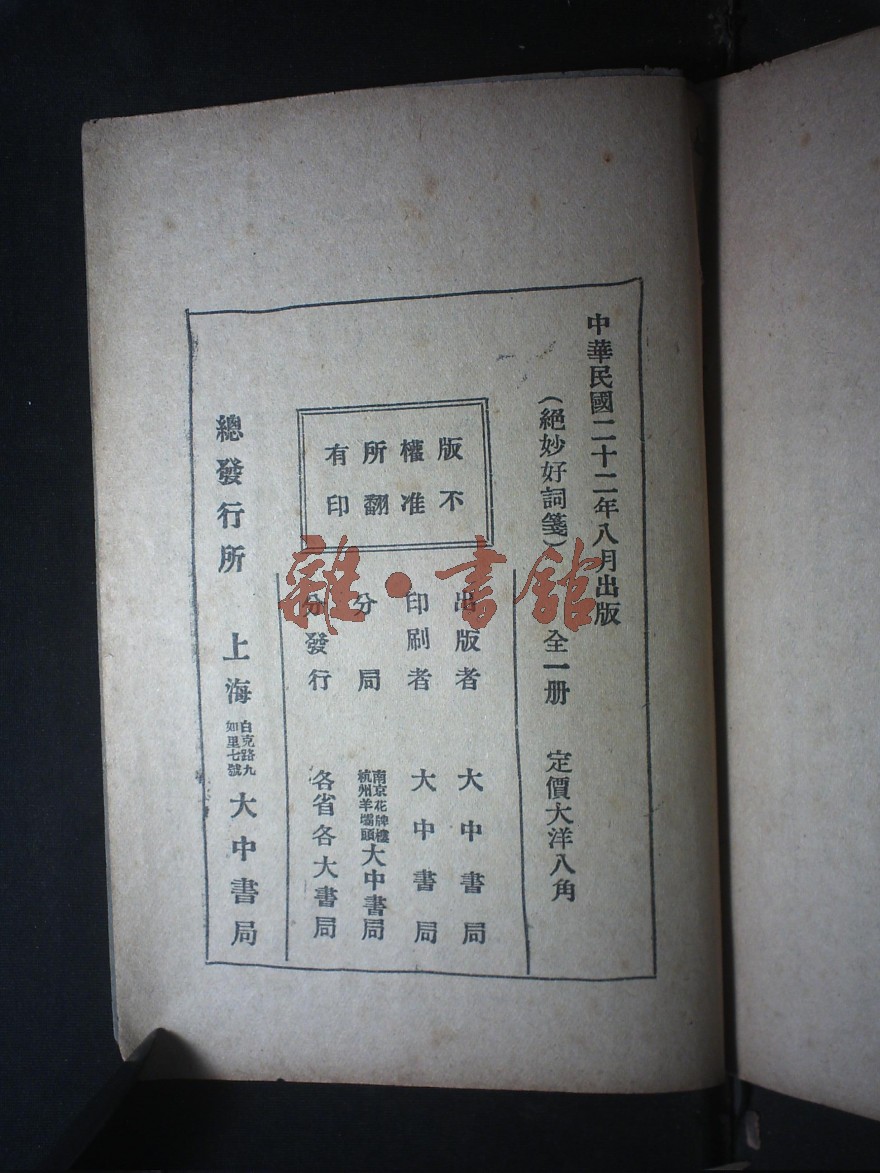 中華民國二十二年八月出版
（絕妙好詞箋） 全一册 定價大洋八角
版權所有
不准翻印
出版者 大中書局
印刷者 大中書局
分局 南京花牌樓 杭州羊壩頭 大中書局
分發行 各省各大書局
總發行所 上海 白克路九如里七號 大中書局
雜·書館